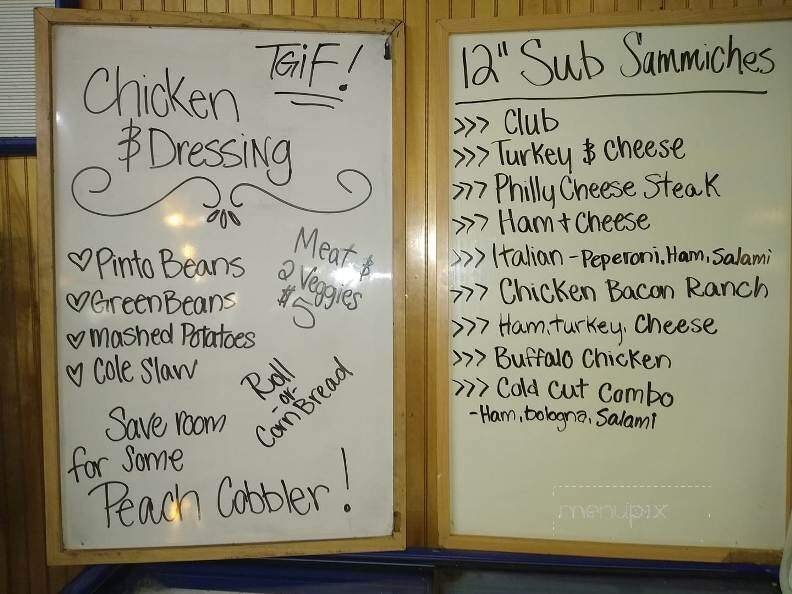 TGiF!
Chicken
& Dressing
Pinto Beans
Green Beans
mashed Potatoes
Cole Slaw
Meat &
2 Veggies
$5
Roll
-or-
Corn Bread
Save room
for Some
Peach Cobbler!
12" Sub Sammiches
>>> Club
>>> Turkey & Cheese
>>> Philly Cheese Steak
>>> Ham + Cheese
>>> Italian - Peperoni, Ham, Salami
>>> Chicken Bacon Ranch
>>> Ham, turkey, Cheese
>>> Buffalo Chicken
>>> Cold Cut Combo
- Ham, bologna, Salami
menupix